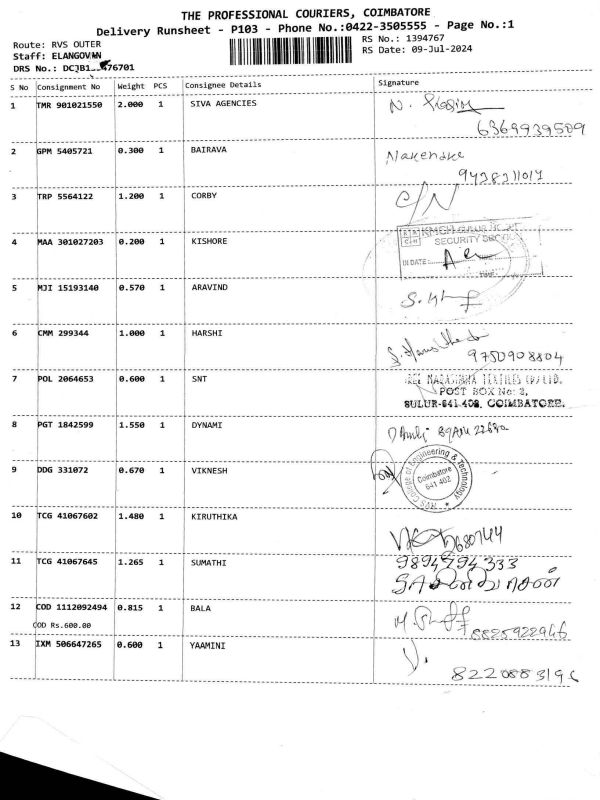 THE PROFESSIONAL COURIERS, COIMBATORE
Delivery Runsheet - P103 - Phone No.:0422-3505555 - Page No.:1
Route: RVS OUTER
RS No.: 1394767
Staff: ELANGOVAN
RS Date: 09-Jul-2024
DRS No.: 76701
S No Consignment No Weight PCS Consignee Details Signature
1 TMR 901021550 2.000 1 SIVA AGENCIES N.
6369939509
2 GPM 5405721 0.300 1 BAIRAVA Narendre
3 TRP 5564122 1.200 1 CORBY C/N
KMCH
SECURITY
IN DATE:
TIME:
4 MAA 301027203 0.200 1 KISHORE
5 MJI 15193140 0.570 1 ARAVIND
6 CMM 299344 1.000 1 HARSHI
9750908804
7 POL 2064653 0.600 1 SNT
POST BOX No: 2,
SULUR-641 402. COIMBATORE.
8 PGT 1842599 1.550 1 DYNAMI
9 DDG 331072 0.670 1 VIKNESH
RVS College of Engineering & Technology
Coimbatore
641 402
10 TCG 41067602 1.480 1 KIRUTHIKA
11 TCG 41067645 1.265 1 SUMATHI 9894794333
12 COD 1112092494 0.815 1 BALA
COD Rs.600.00
8825922946
13 IXM 506647265 0.600 1 YAAMINI
8220883196